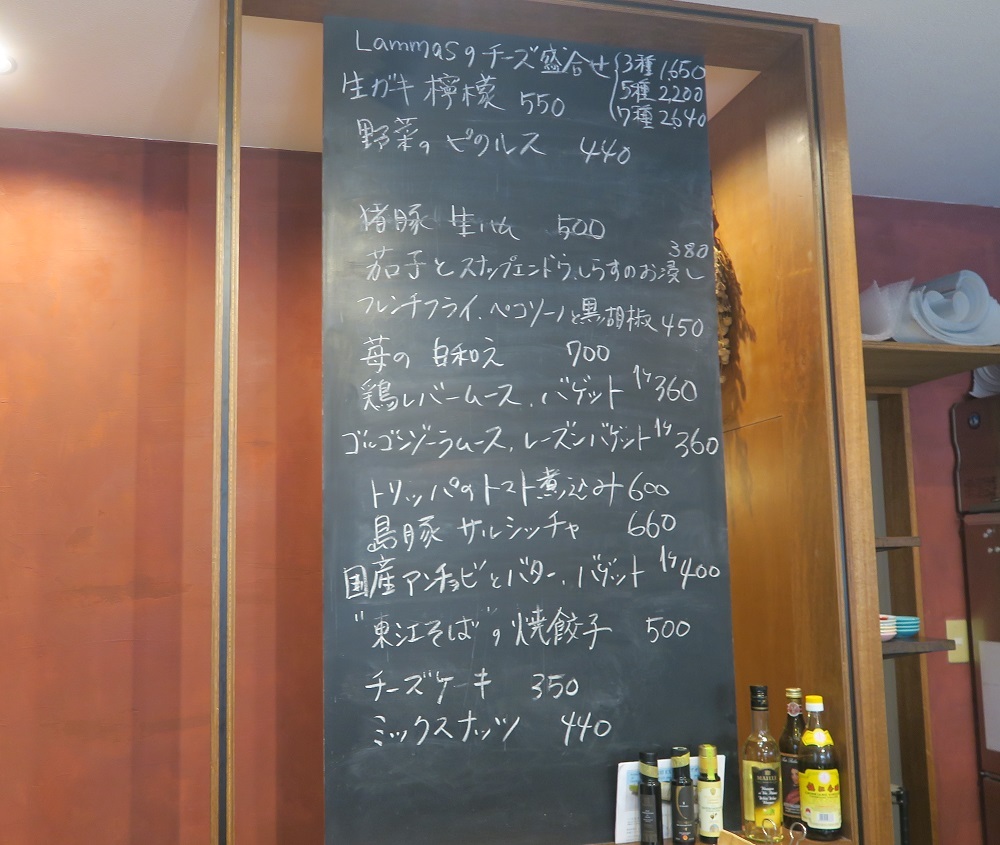 Lammasのチーズ盛合せ 3種 1,650
5種 2,200
7種 2,640
生ガキ 檸檬 550
野菜のピクルス 440
猪豚 生ハム 500
茄子とスナップエンドウ、しらすのお浸し 380
フレンチフライ、ペコリーノと黒胡椒 450
苺の白和え 700
鶏レバームース、バゲット 1ケ 360
ゴルゴンゾーラムース、レーズンバゲット 1ケ 360
トリッパのトマト煮込み 600
島豚 サルシッチャ 660
国産アンチョビとバター、バゲット 1ケ 400
"東江そば"の焼餃子 500
チーズケーキ 350
ミックスナッツ 440
MAILLE